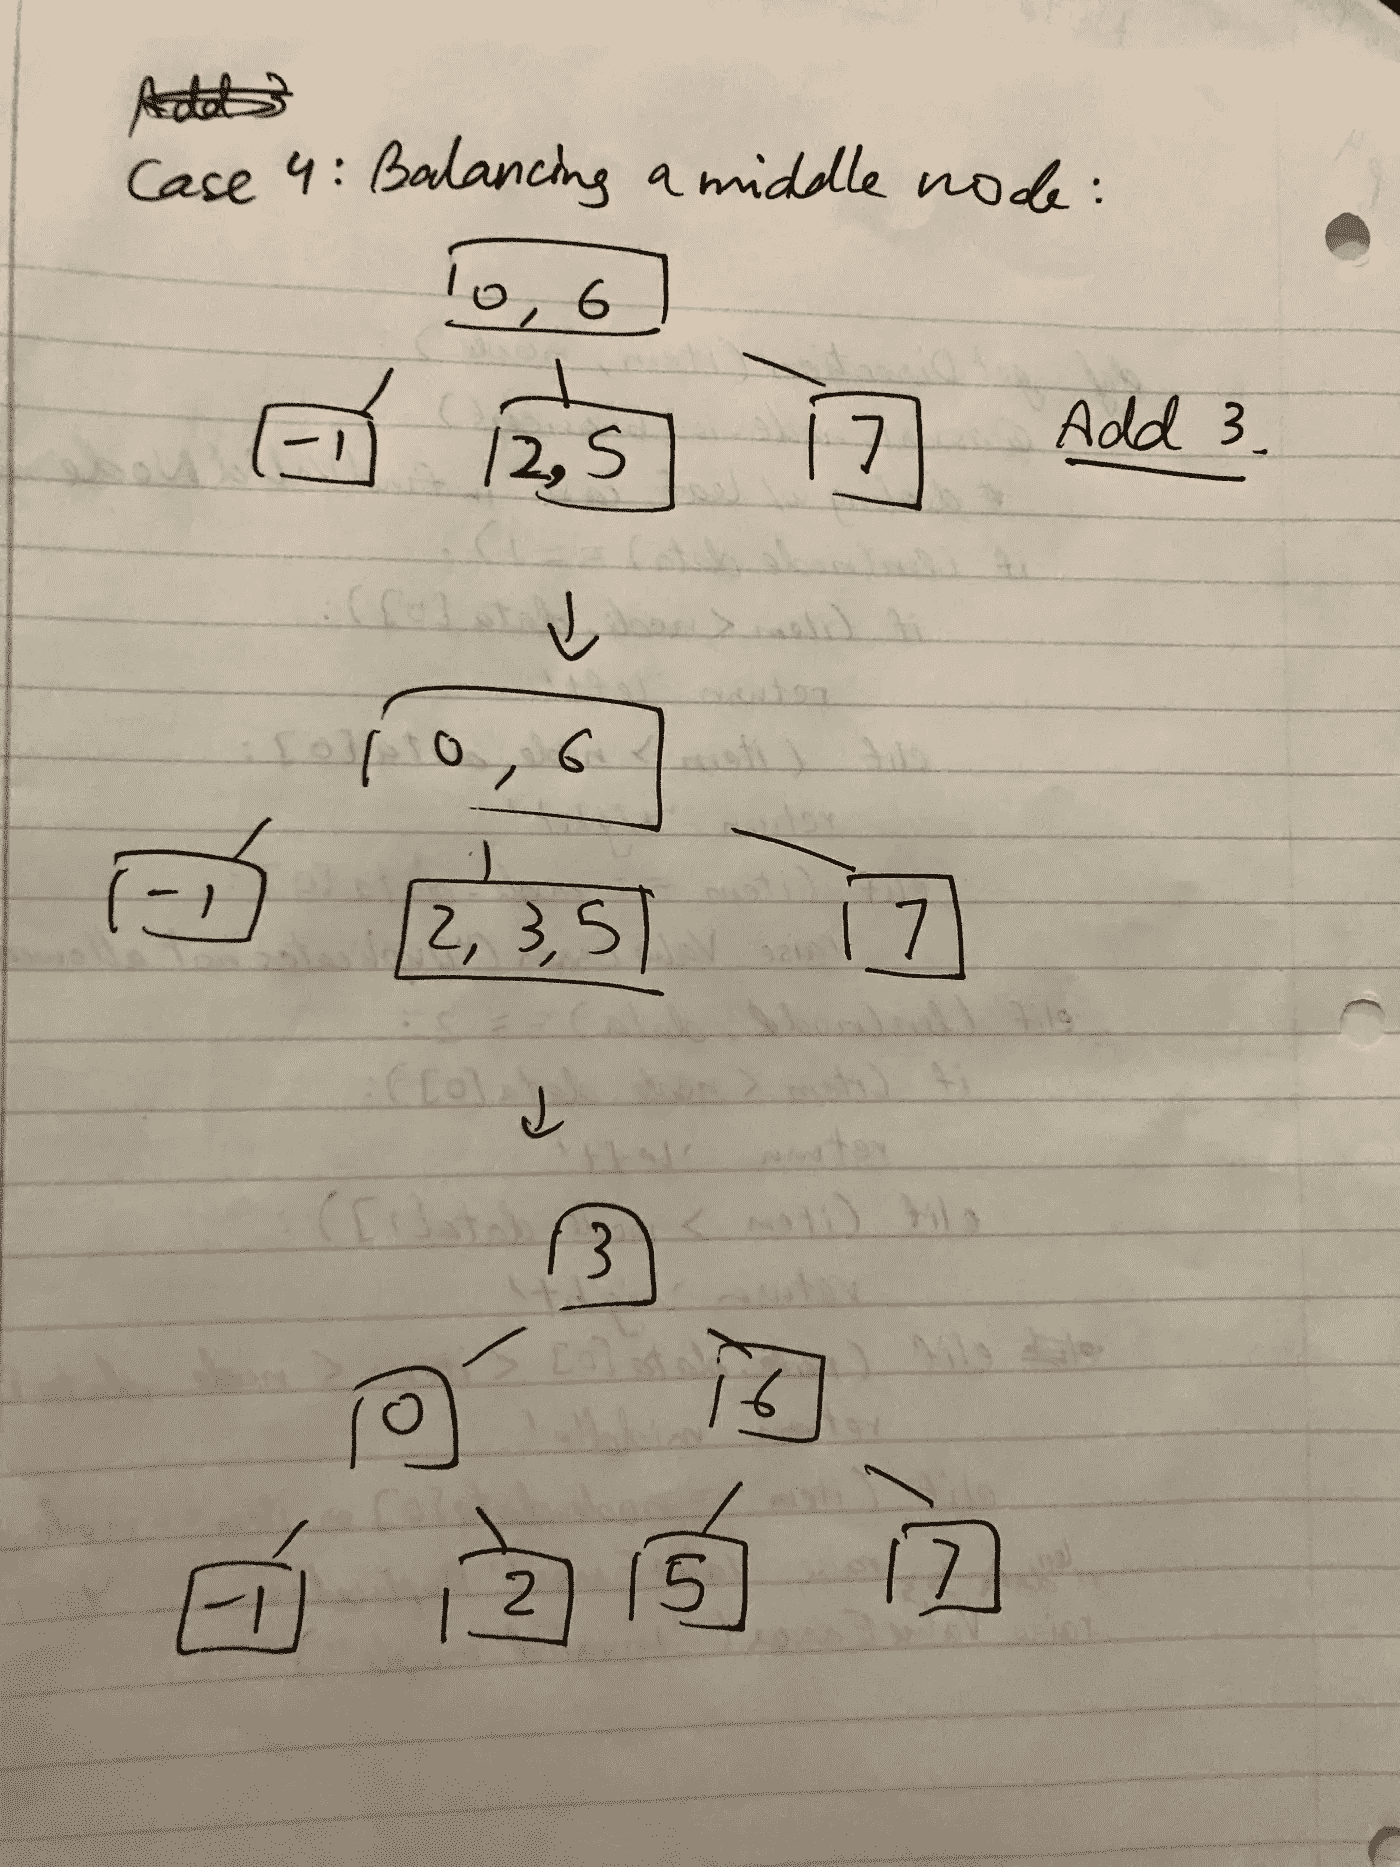 Case 4: Balancing a middle node:
0, 6
-1 2,5 7 Add 3.
0, 6
-1 2, 3, 5 7
3
0 6
-1 2 5 7